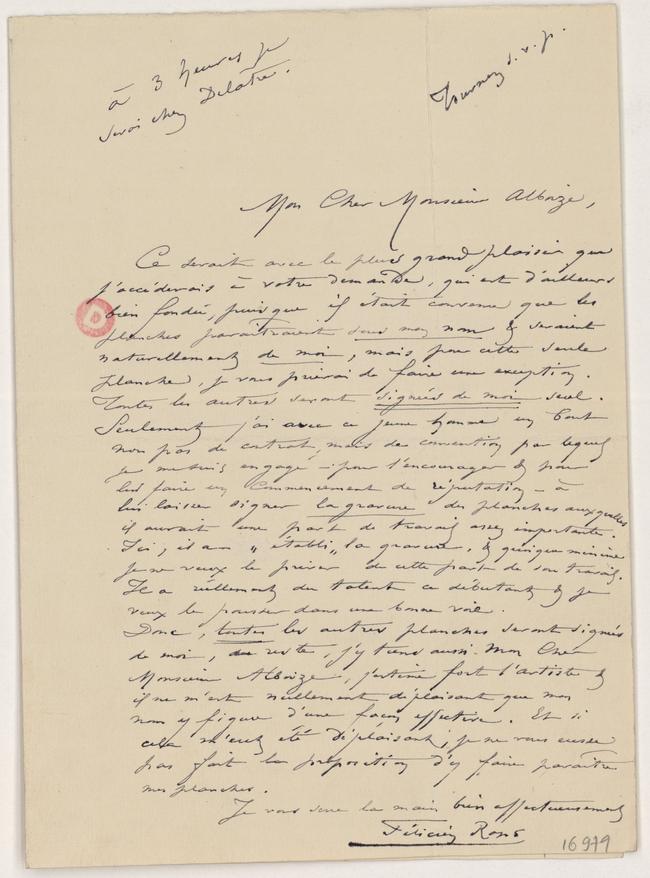 à 3 heures je
serai chez Delâtre.
Tournez s. v. p.
Mon Cher Monsieur Alboize,
Ce serait avec le plus grand plaisir que
j'accéderais à votre demande, qui est d'ailleurs
bien fondée, puisque il était convenu que les
planches paraîtraient sous mon nom & seraient
naturellement de moi, mais pour cette seule
planche, je vous prierai de faire une exception.
Toutes les autres seront signées de moi seul.
Seulement j'ai avec ce jeune homme un bout
non pas de contrat, mais de convention par lequel
je me suis engagé – pour l'encourager & pour
lui faire un commencement de réputation – à
lui laisser signer la gravure des planches auxquelles
il aurait une part de travail assez importante.
Ici, il a "établi" la gravure, & quoique minime
je ne veux le priver de cette part de son travail.
Il a réellement du talent ce débutant & je
veux le pousser dans une bonne voie.
Donc, toutes les autres planches seront signées
de moi, du reste, j'y tiens aussi. Mon Cher
Monsieur Alboize, j'estime fort l'Artiste &
il ne m'est nullement déplaisant que mon
nom y figure d'une façon effective. Et si
cela m'eut été déplaisant, je ne vous eusse
pas fait la proposition d'y faire paraître
mes planches.
Je vous serre la main bien affectueusement
Félicien Rops
16979